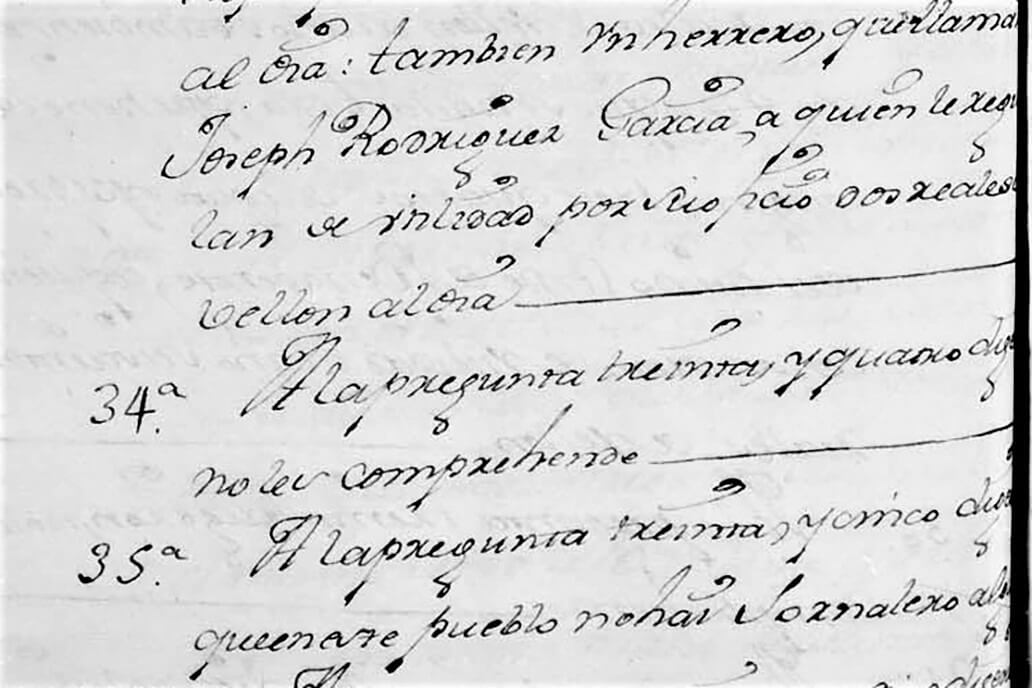 al dia: tambien Un herrero, que llama
Joseph Rodriguez Garcia, a quien le regu
lan de vtilidad por su ofizio dos reales
vellon al dia
34.ª A la pregunta treinta, y quatro dige
no les comprehende
35.ª A la pregunta treinta, y cinco dige
que en este pueblo no hai Jornalero alg